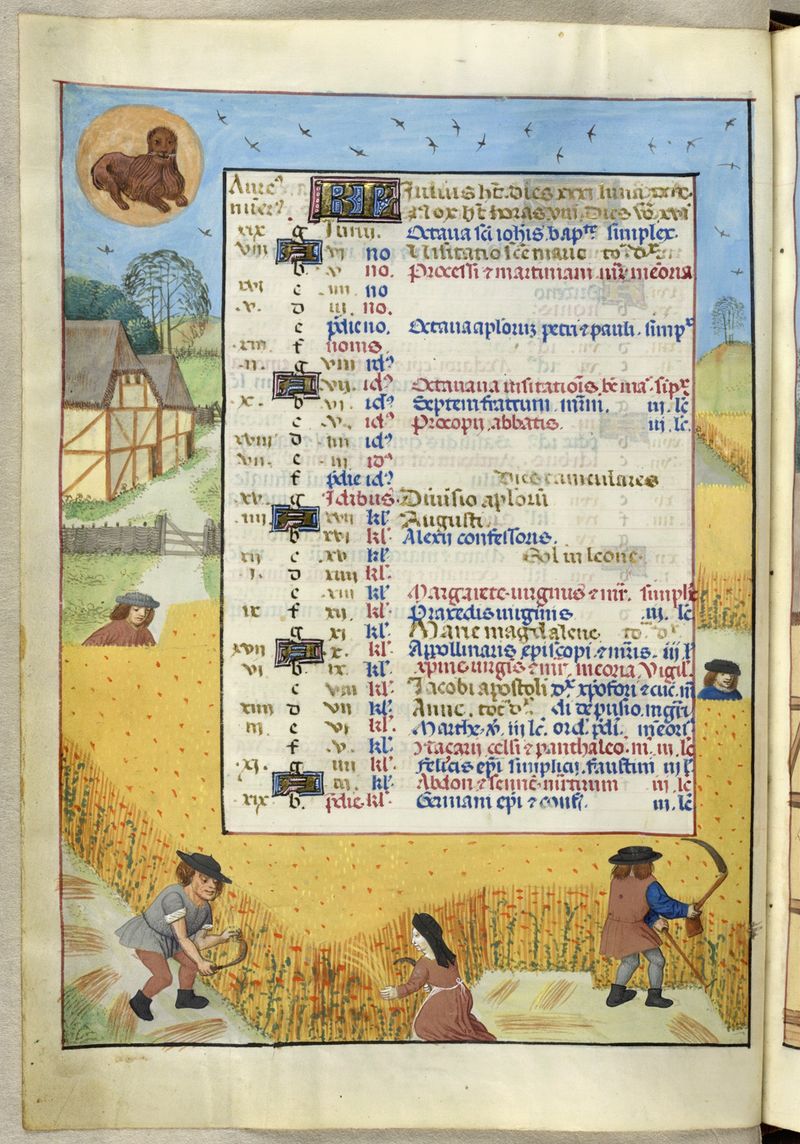 Aure⁹ n. KL Julius ht. dies xxxi luna xxix.
nūer⁹ Nox ht horas viii. Dies v̄o xvi
xix g Octaua sc̄i ioh̄is bapt̄e simplex.
viii A vi no Uisitatio sc̄e marie to⁹ d⁹x
b v no. Processi ⁊ martiniani mr̄ meōria
xvi c iiii no
v. d iii no.
e p̄die no. Octaua aploruꝫ petri ⁊ pauli. simp̄x
xiii f nonis
ii. g viii id⁹
A vii id⁹ Octauaua uisitatiōis. bē ma⁹. sip̄x
x. b vi. id⁹ Septem fratrum. mr̄m. iii lc̄
c v. id⁹ Procopii. abbatis. iii. lc̄.
xviii d iiii id⁹
vii. e iii id⁹
f p̄die id⁹ Dies caniculares
xv. g Idibus Diuisio aplorū
iiii A xvii kl⁹ Augusti.
b xvi kl⁹ Alexii confessoris.
xii c xv kl⁹ Sol in leone.
i. d xiiii kl⁹.
e xiii kl⁹. Margarete uirginis ⁊ mr̄. simplex
ix f xii. kl⁹. Praxedis uirginis .iii. lc̄
g xi kl⁹. Marie magdalene. to⁹ d⁹x
xvii A x. kl⁹. Appollinaris episcopi. ⁊ mr̄is. iii l̄
vi b ix. kl⁹. xpine uirgīs ⁊ mr̄. meōria. Vigil⁹.
c viii kl⁹. Iacobi apostoli d⁹x
xiiii d vii kl⁹. Anne. tot⁹ d⁹x
iii. e vi kl⁹. Marthe. v̄. iii lc̄.
f .v. kl⁹. Nazarii celsi ⁊ panthaleo. m. iii. lc̄
.xi. g iiii kl⁹. felicis ep̄i simplicii. faustini iii l̄
A iii. kl⁹ Abdon ⁊ sennē. mr̄tirum iii. lc̄
xix b. p̄die kl⁹. Germani ep̄i ⁊ conf̄. iii. lc̄